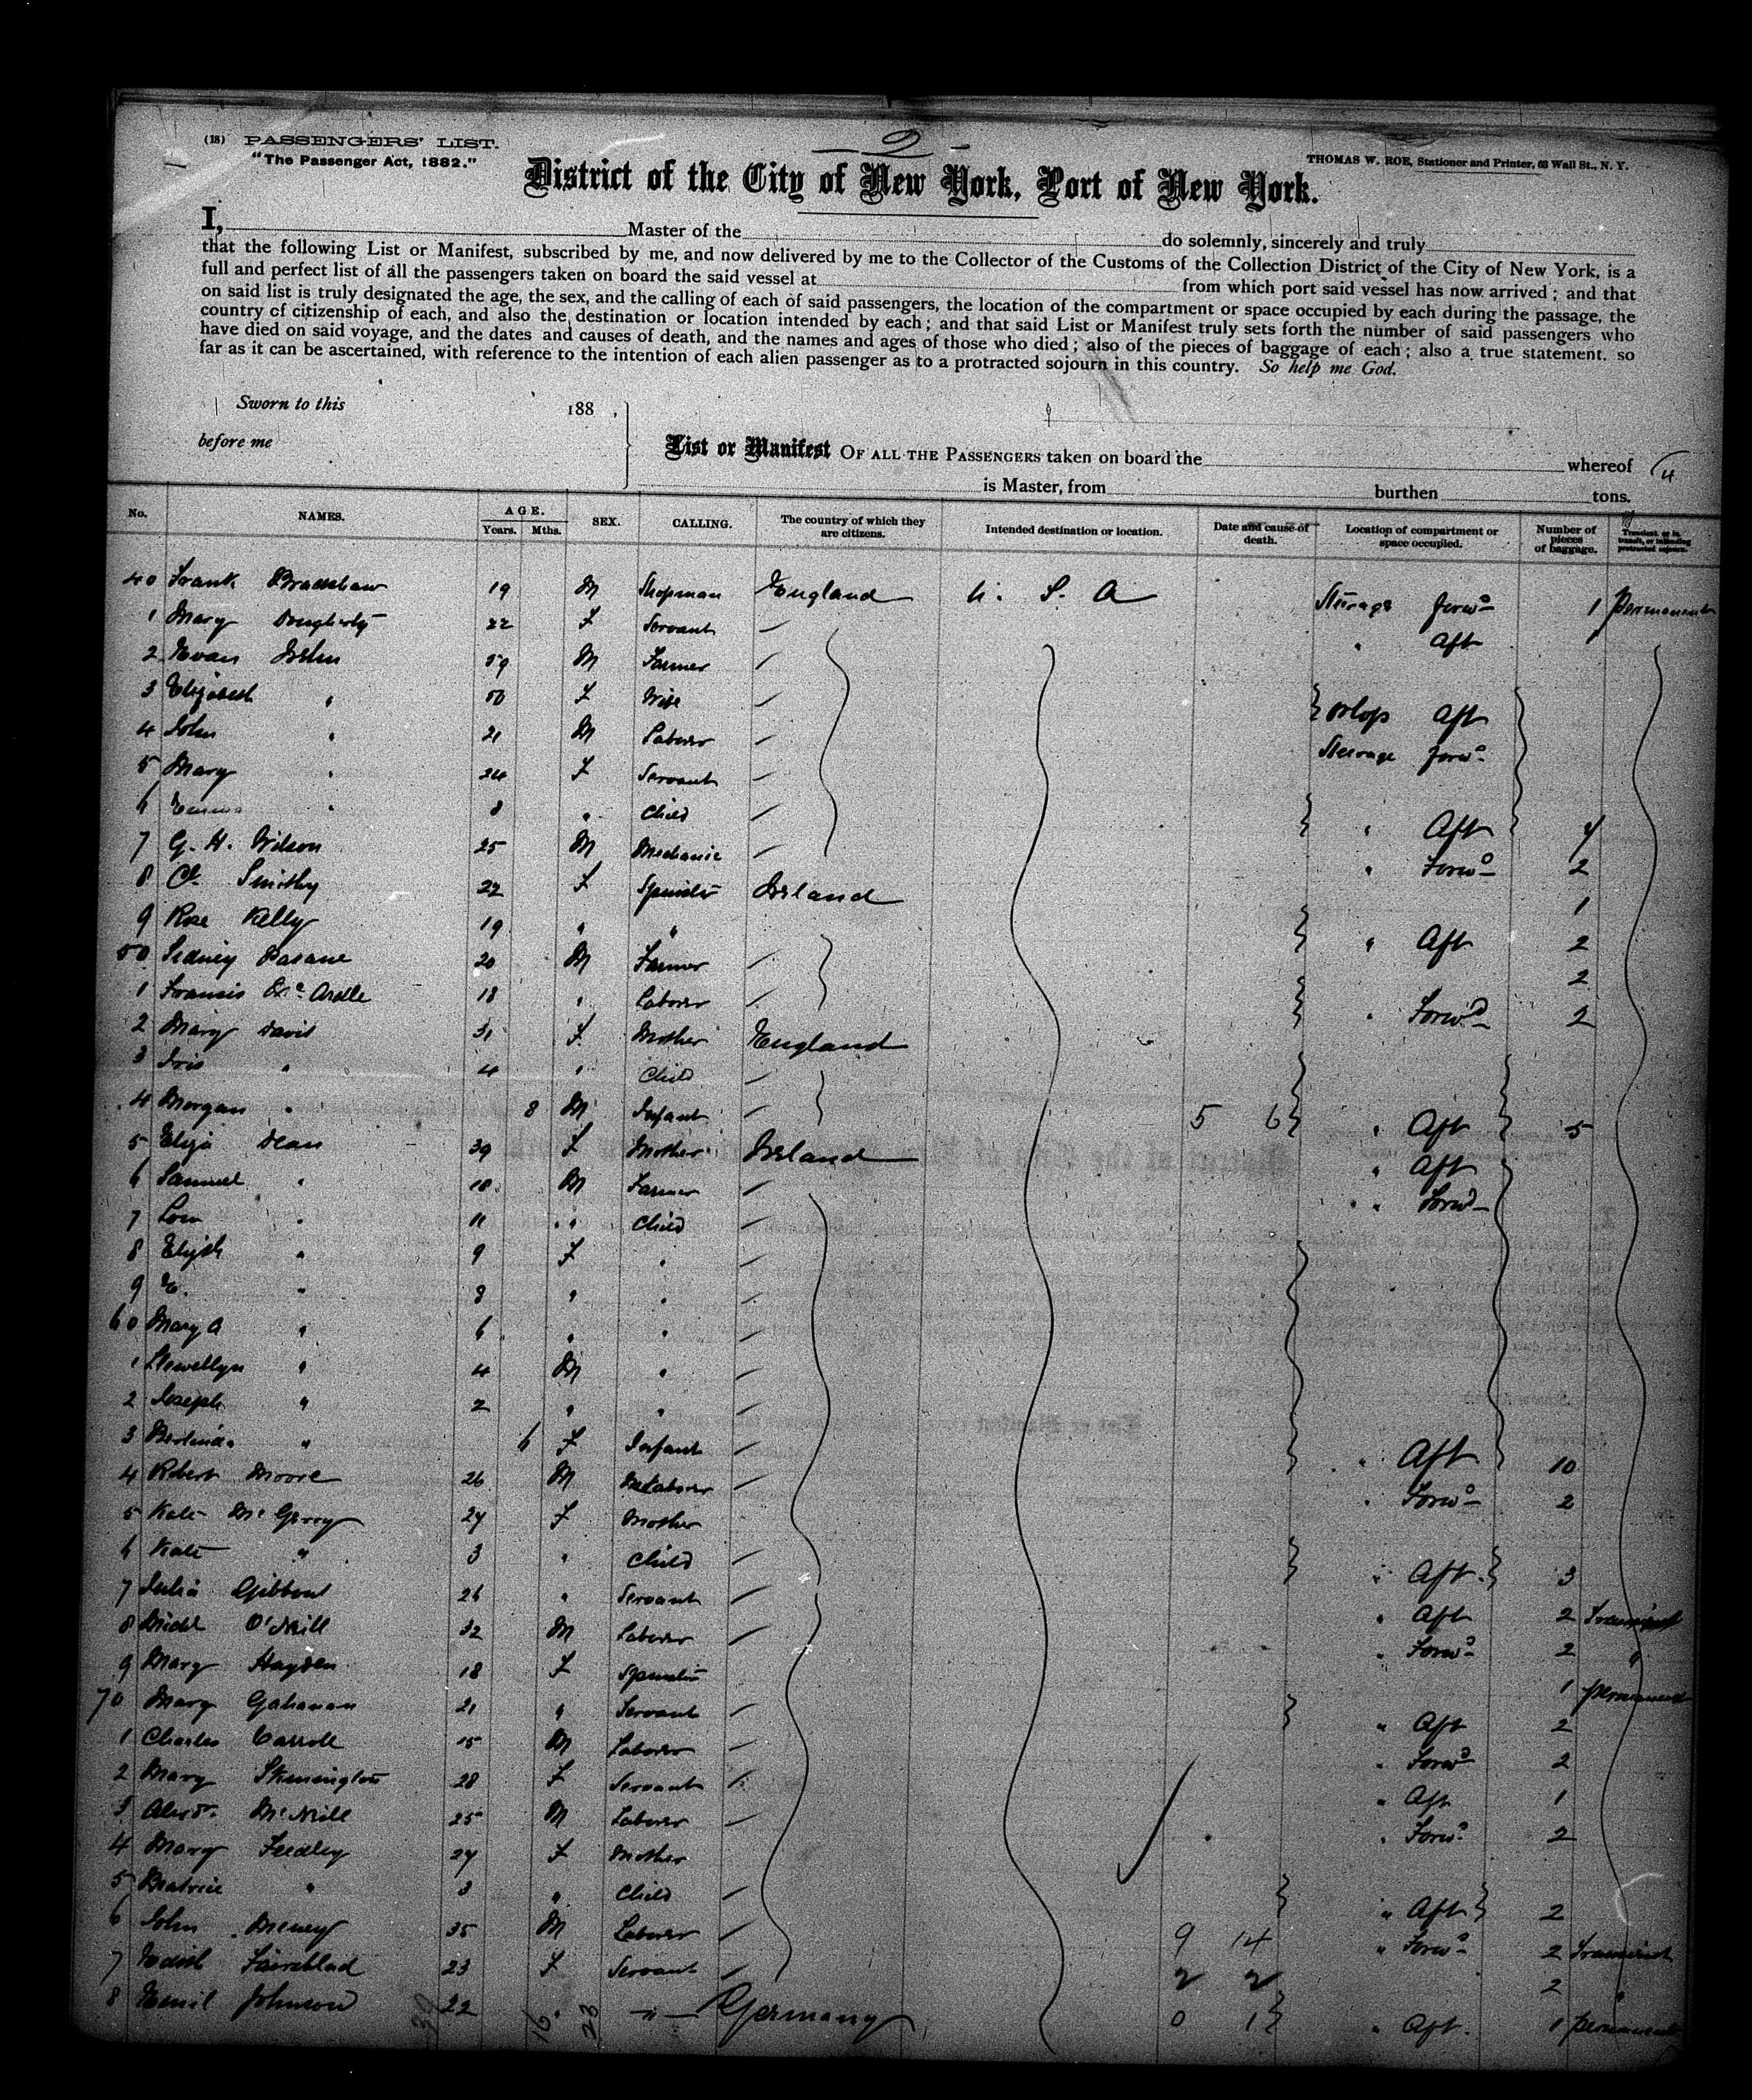 (18) PASSENGERS' LIST.
2
"The Passenger Act, 1882."
THOMAS W. ROE, Stationer and Printer, 63 Wall St., N. Y.
District of the City of New York, Port of New York.
I, Master of the do solemnly, sincerely and truly
that the following List or Manifest, subscribed by me, and now delivered by me to the Collector of the Customs of the Collection District of the City of New York, is a
full and perfect list of all the passengers taken on board the said vessel at from which port said vessel has now arrived; and that
on said list is truly designated the age, the sex, and the calling of each of said passengers, the location of the compartment or space occupied by each during the passage, the
country of citizenship of each, and also the destination or location intended by each; and that said List or Manifest truly sets forth the number of said passengers who
have died on said voyage, and the dates and causes of death, and the names and ages of those who died; also of the pieces of baggage of each; also a true statement. so
far as it can be ascertained, with reference to the intention of each alien passenger as to a protracted sojourn in this country. So help me God.
Sworn to this 188 .
before me
List or Manifest OF ALL THE PASSENGERS taken on board the whereof
is Master, from burthen tons.
No. NAMES. AGE. Years. Mths. SEX. CALLING. The country of which they are citizens. Intended destination or location. Date and cause of death. Location of compartment or space occupied. Number of pieces of baggage. Transient or in transit, or intending protracted sojourn.
40 Frank Bradshaw 19 M Shopman England U. S. A Steerage Forwd 1 Permanent
1 Mary Dougherty 22 F Servant " Aft 1
2 Evan 59 M Farmer
3 Elizabeth " 50 F Wife Orlop Aft
4 John " 21 M Laborer Steerage Forwd
5 Mary " 24 F Servant
6 Emma " 8 " Child " Aft 4
7 G. H. Wilson 25 M Mechanic " Forwd 2
8 Smithy 22 F Spinster Ireland 1
9 Rose Kelly 19 " " " Aft 2
50 Sidney 20 M Farmer 2
1 Francis 18 " Laborer " Forwd 2
2 Mary David 31 F Mother England
3 " 4 " Child
4 Morgan " 8 M Infant 5 6 " Aft 5
5 Eliza Dean 39 F Mother Ireland " Aft
6 Samuel " 18 M Farmer " Forwd
7 " 11 " Child
8 " 9 F "
9 E. " 8 " "
60 Mary A " 6 " "
1 Llewellyn " 4 M "
2 Joseph " 2 " "
3 " 6 F Infant " Aft 10
4 Robert Moore 26 M Laborer " Forwd 2
5 Kate 27 F Mother
6 Kate " 3 " Child " Aft 3
7 Julia 26 " Servant " Aft 2 Transient
8 Michl O'Neill 32 M Laborer " Forwd 2 "
9 Mary Hayden 18 F Spinster 1 permanent
70 Mary Gahanan 21 " Servant " Aft 2
1 Charles Carroll 15 M Laborer " Forwd 2
2 Mary 28 F Servant " Aft 1
3 McNeill 25 M Laborer " Forwd 2
4 Mary Feedley 27 F Mother
5 Beatrice " 3 " Child " Aft 2
6 John 35 M Laborer 9 14 " Forwd 2 Transient
7 Edith 23 F Servant 2 2 2 "
8 Emil Johnson 22 " " Germany 0 1 " Aft. 1 permanent
16 23